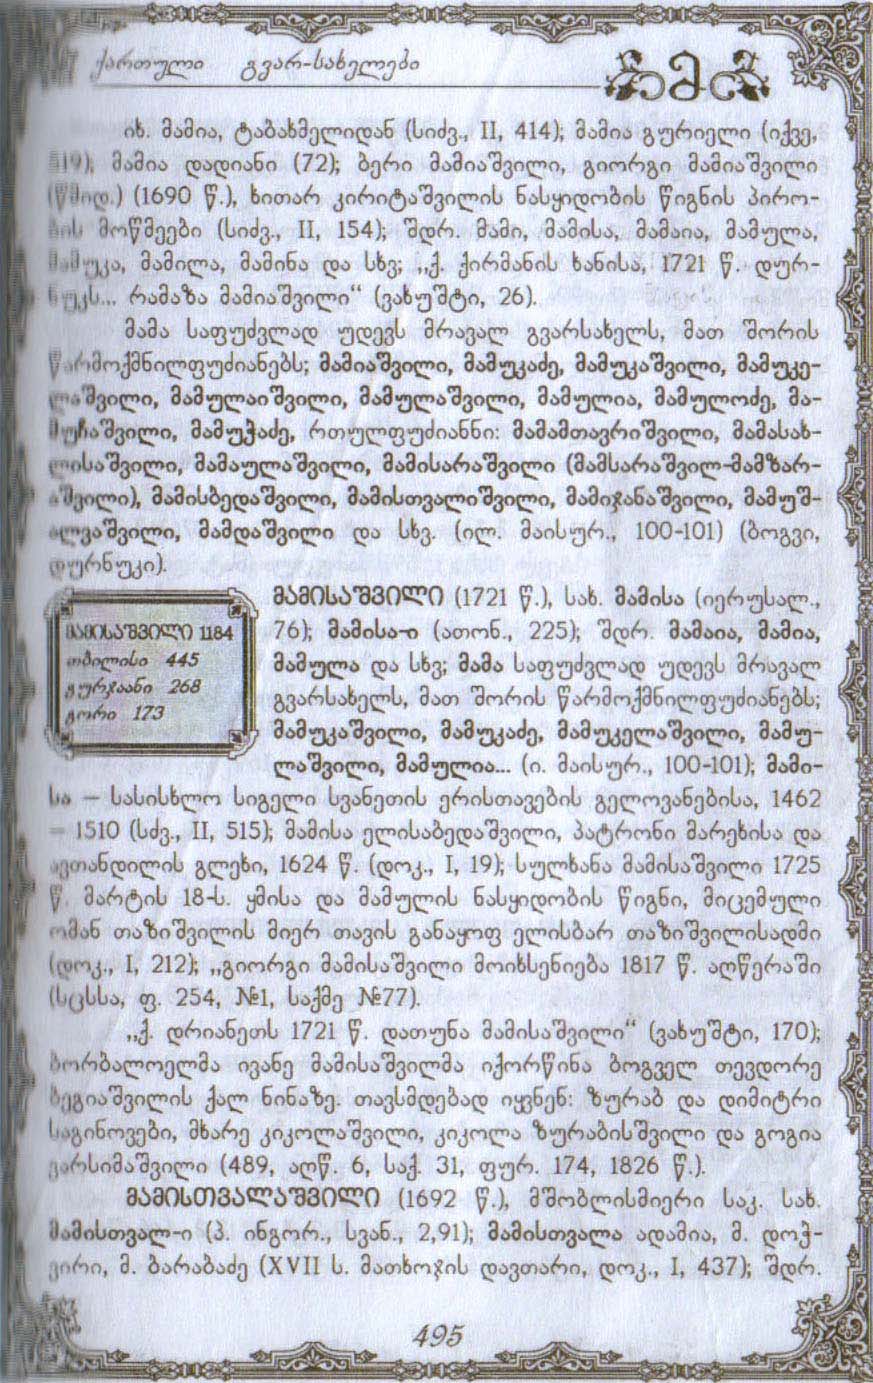 ქართული გვარ-სახელები
მ
იხ. მამია, ტაბახმელიდან (სიძვ., II, 414); მამია გურიელი (იქვე,
მამია დადიანი (72); ბერი მამიაშვილი, გიორგი მამიაშვილი
(წმიდ.) (1690 წ.), ხითარ კირიტაშვილის ნასყიდობის წიგნის პირო-
ბის მოწმეები (სიძვ., II, 154); შდრ. მამი, მამისა, მამაია, მამულა,
მამუკა, მამილა, მამინა და სხვ; „ქ. ქირმანის ხანისა, 1721 წ. დურ-
ნუკს... რამაზა მამიაშვილი“ (ვახუშტი, 26).
მამა საფუძვლად უდევს მრავალ გვარსახელს, მათ შორის
წარმოქმნილფუძიანებს; მამიაშვილი, მამუკაძე, მამუკაშვილი, მამუკე-
ლაშვილი, მამულაიშვილი, მამულაშვილი, მამულია, მამულოძე, მა-
მუჩაშვილი, მამუჭაძე, რთულფუძიანნი: მამამთავრიშვილი, მამასახ-
ლისაშვილი, მამაულაშვილი, მამისარაშვილი (მამსარაშვილ-მამზარ-
აშვილი), მამისბედაშვილი, მამისთვალიშვილი, მამიჯანაშვილი, მამუშ-
ალვაშვილი, მამდაშვილი და სხვ. (ილ. მაისურ., 100-101) (ბოგვი,
დურნუკი).
მამისაშვილი 1184
თბილისი 445
გურჯაანი 268
გორი 173
მამისაშვილი (1721 წ.), სახ. მამისა (იერუსალ.,
76); მამისა-ი (ათონ., 225); შდრ. მამაია, მამია,
მამულა და სხვ; მამა საფუძვლად უდევს მრავალ
გვარსახელს, მათ შორის წარმოქმნილფუძიანებს;
მამუკაშვილი, მამუკაძე, მამუკელაშვილი, მამუ-
ლაშვილი, მამულია... (ი. მაისურ., 100-101); მამი-
სა – სასისხლო სიგელი სვანეთის ერისთავების გელოვანებისა, 1462
– 1510 (სძვ., II, 515); მამისა ელისაბედაშვილი, პატრონი მარეხისა და
ავთანდილის გლეხი, 1624 წ. (დოკ., I, 19); სულხანა მამისაშვილი 1725
წ. მარტის 18-ს. ყმისა და მამულის ნასყიდობის წიგნი, მიცემული
ომან თაზიშვილის მიერ თავის განაყოფ ელისბარ თაზიშვილისადმი
(დოკ., I, 212); „გიორგი მამისაშვილი მოიხსენიება 1817 წ. აღწერაში
(სცსსა, ფ. 254, №1, საქმე №77).
„ქ. დრიანეთს 1721 წ. დათუნა მამისაშვილი“ (ვახუშტი, 170);
ბორბალოელმა ივანე მამისაშვილმა იქორწინა ბოგველ თევდორე
ბეგიაშვილის ქალ ნინაზე. თავსმდებად იყვნენ: ზურაბ და დიმიტრი
საგინოვები, მხარე კიკოლაშვილი, კიკოლა ზურაბისშვილი და გოგია
ვარსიმაშვილი (489, აღწ. 6, საქ. 31, ფურ. 174, 1826 წ.).
მამისთვალაშვილი (1692 წ.), მშობლისმიერი საკ. სახ.
მამისთვალ-ი (პ. ინგორ., სვან., 2,91); მამისთვალა ადამია, მ. დოჭ-
ვირი, მ. ბარაბაძე (XVII ს. მათხოჯის დავთარი, დოკ., I, 437); შდრ.
495